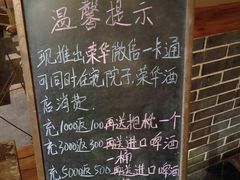 温馨提示
现推出荣华微信一卡通
可同时在苑院子,荣华酒
店消费.
充1000返100再送抱枕一个
充3000返300再送进口啤酒
一桶
充5000返500再送进口啤酒